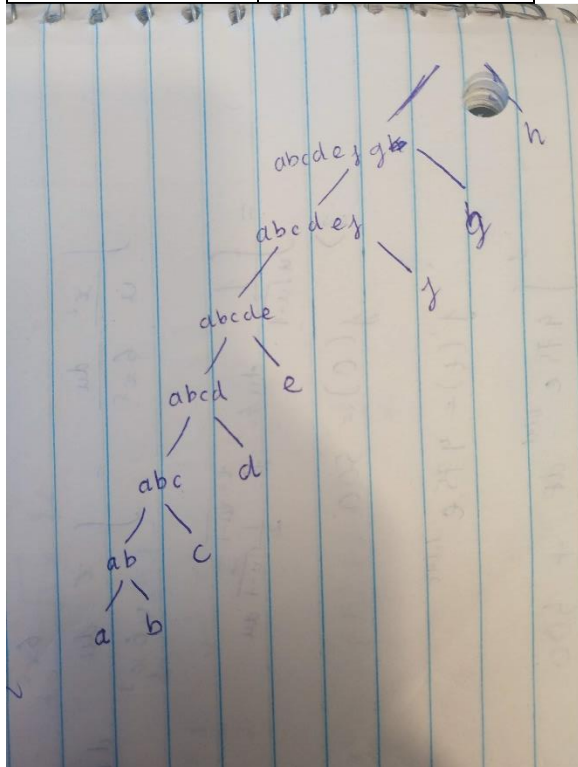 h
abcdefg
g
abcdef
f
abcde
e
abcd
d
abc
c
ab
a b